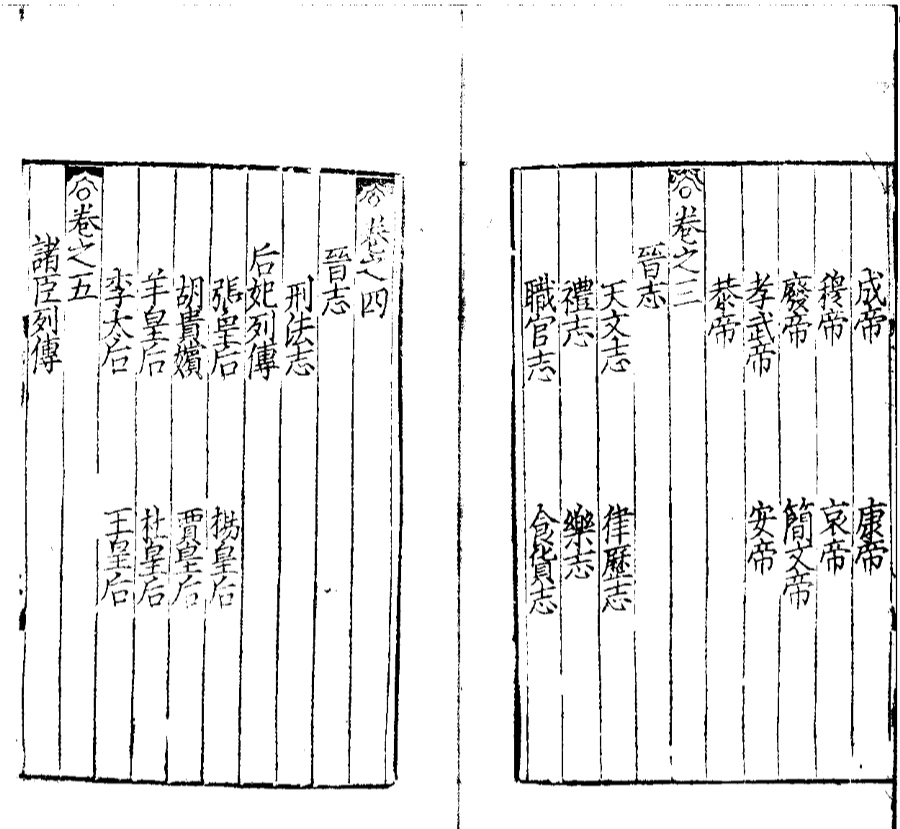 成帝 康帝
穆帝 哀帝
廢帝 簡文帝
孝武帝 安帝
恭帝
卷之三
晉志
天文志 律歷志
禮志 樂志
職官志 食貨志
卷之四
晉志
刑法志
后妃列傳
張皇后 楊皇后
胡貴嬪 賈皇后
羊皇后 杜皇后
李太后 王皇后
卷之五
諸臣列傳